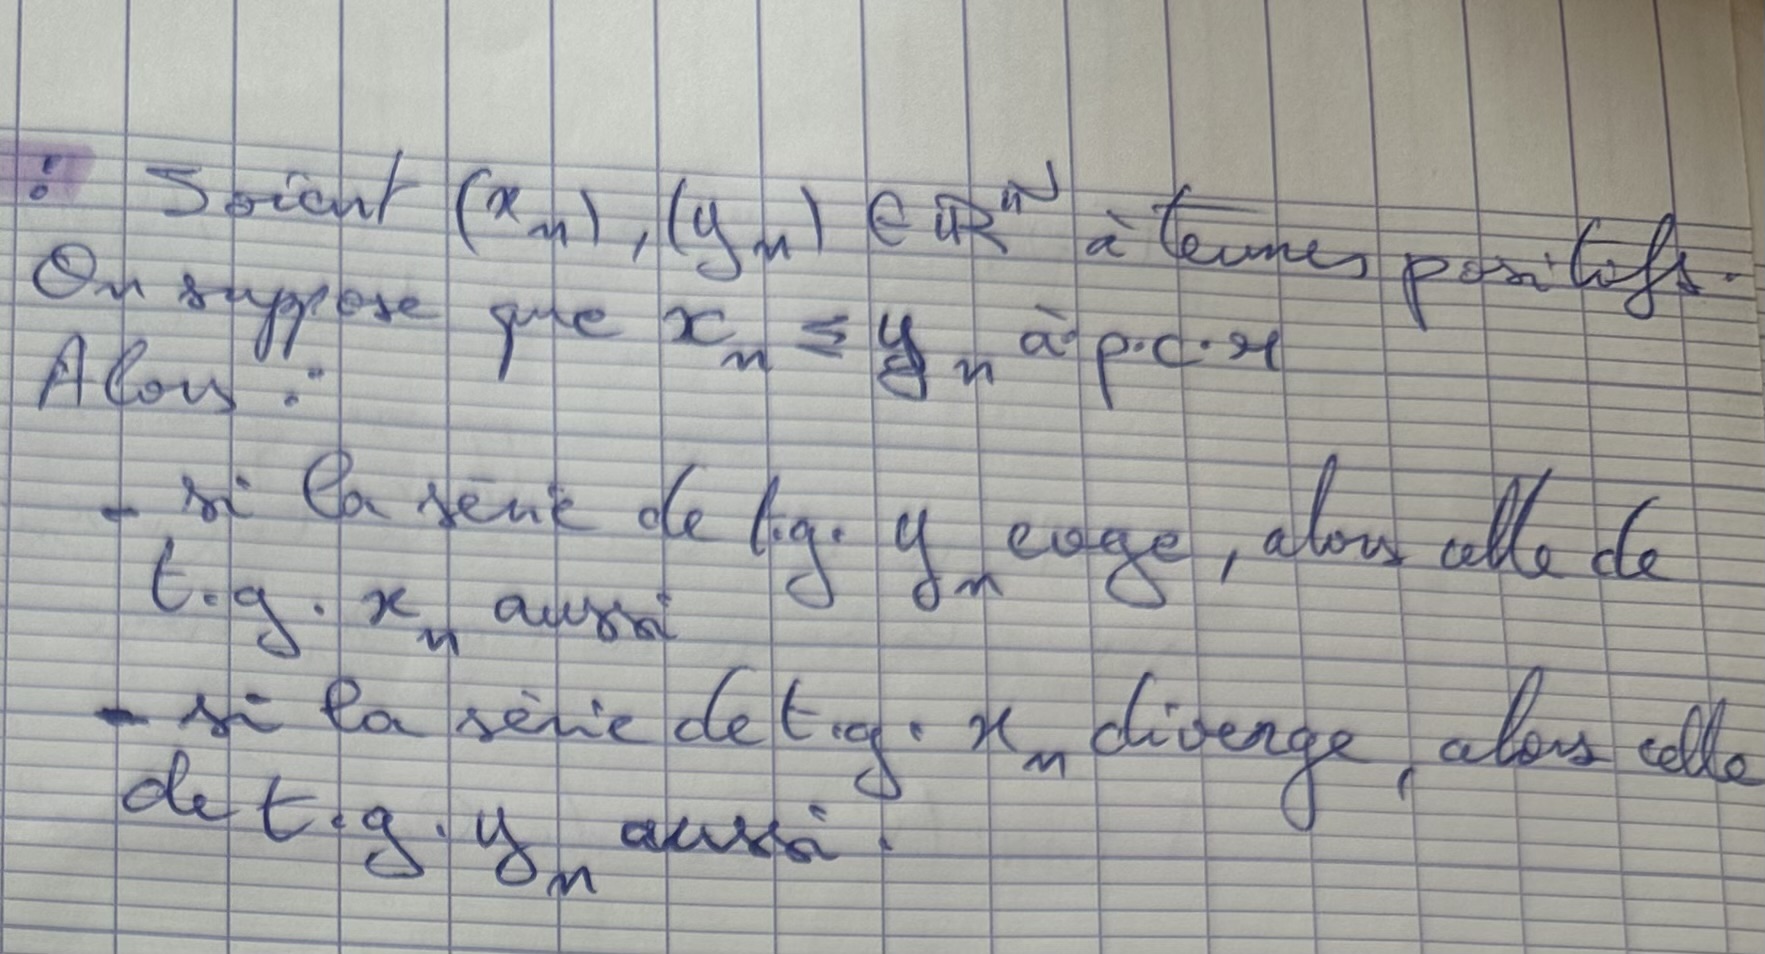 : Soient (xₙ), (yₙ) ∈ ℝ^ℕ à termes positifs.
On suppose que xₙ ≤ yₙ à p.c.r
Alors :
- si la série de t.g. yₙ cvge, alors celle de
t.g. xₙ aussi
- si la série de t.g. xₙ diverge, alors celle
de t.g. yₙ aussi.